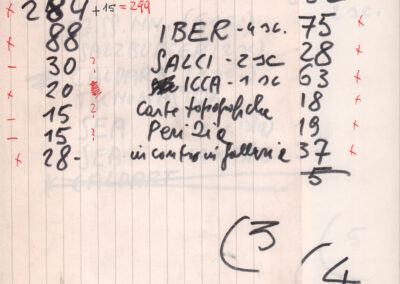 x 284 + 15 = 299
x 88 IBER - 4 sc. 75 x
- 30 ? SALCI - 2 sc 28 x
x 20 ICCA - 1 sc 63 x
- 15 ? carte topografiche 18 x
- 15 ? Perizia 19 x
x 28 - incontro in galleria 37 x
5
(3
(4